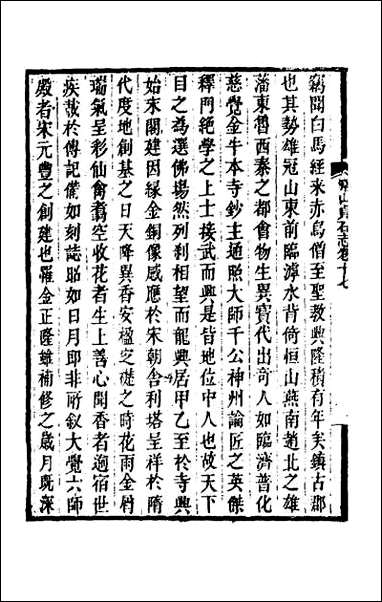 竊聞白馬經来赤烏僧至聖教興隆積有年矣鎮古郡
也其勢雄冠山東前臨滹水背倚恒山燕南趙北之雄
藩東魯西秦之都會物生異寶代出奇人如臨濟普化
慈覺金牛本寺鈔主通照大師千公神州論匠之英傑
釋門絶學之上士接武而興是皆地位中人也故天下
目之為選佛塲然列刹相望而龍興居甲乙至於寺興
始末閣建因緣金銅像感應於宋朝舍利塔呈祥於隋
代度地創基之日天降異香安楹之礎之時花雨金屑
瑞氣呈彩仙禽翥空收花者生上善心聞香者逈宿世
疾哉於傳記僃如刻誌眧如日月即非所敘大覺六師
殿者宋元豐之創建也罹金正隆雖補修之歳月既深
常山貞石志卷十七